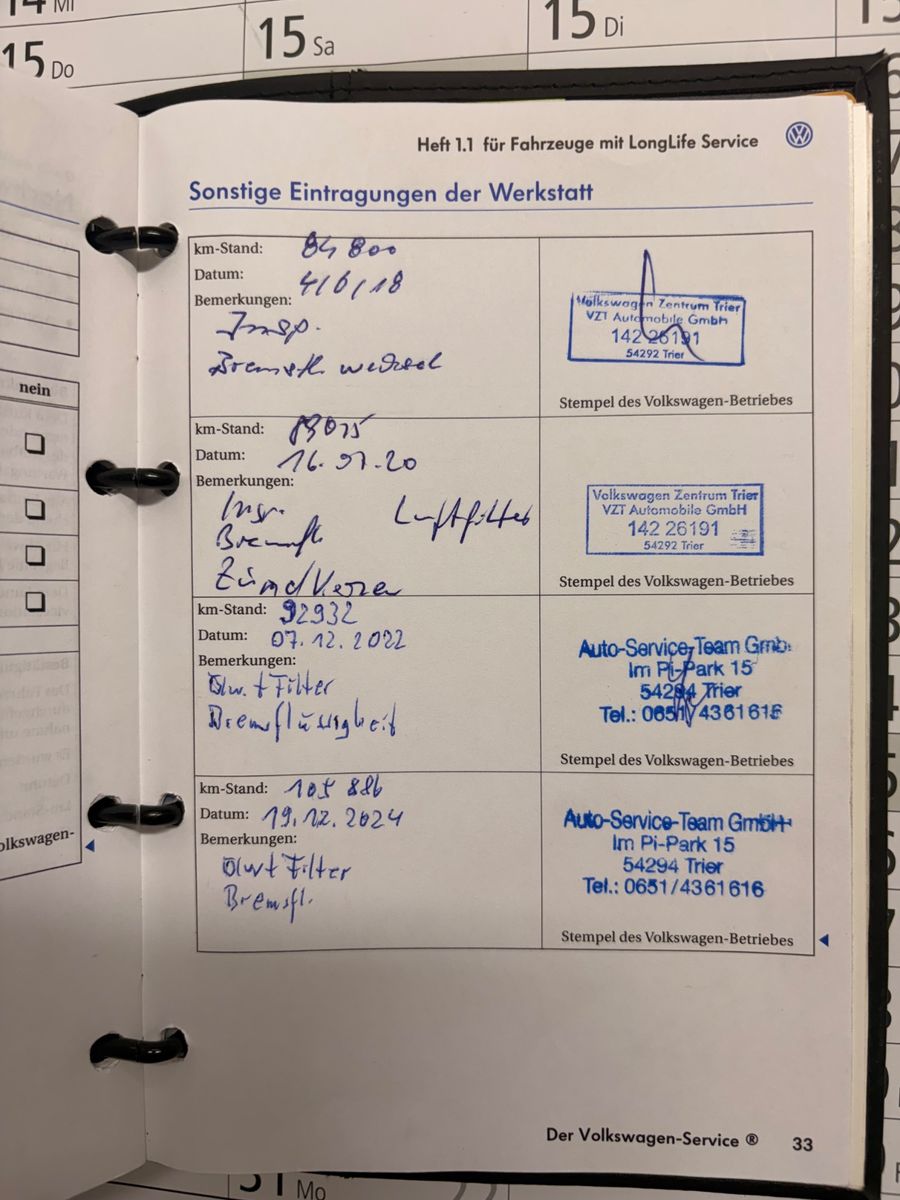 15 Do
15 Sa
15 Di
Heft 1.1 für Fahrzeuge mit LongLife Service
Sonstige Eintragungen der Werkstatt
km-Stand: 84 800
Datum: 4/6/18
Bemerkungen:
Insp.
Bremsfl. wechsel
Volkswagen Zentrum Trier
VZT Automobile GmbH
142 26191
54292 Trier
Stempel des Volkswagen-Betriebes
km-Stand: 89075
Datum: 16.01.20
Bemerkungen:
Insp. Luftfilter
Bremsfl.
Zündkerzen
Volkswagen Zentrum Trier
VZT Automobile GmbH
142 26191
54292 Trier
Stempel des Volkswagen-Betriebes
km-Stand: 92932
Datum: 07.12.2022
Bemerkungen:
Ölw.+Filter
Bremsflüssigkeit
Auto-Service-Team Gmb
Im Pi-Park 15
54294 Trier
Tel.: 0651/4361616
Stempel des Volkswagen-Betriebes
km-Stand: 105 886
Datum: 19.12.2024
Bemerkungen:
Ölw+Filter
Bremsfl.
Auto-Service-Team GmbH
Im Pi-Park 15
54294 Trier
Tel.: 0651/4361616
Stempel des Volkswagen-Betriebes
nein
olkswagen-
Der Volkswagen-Service ® 33
31 Mo